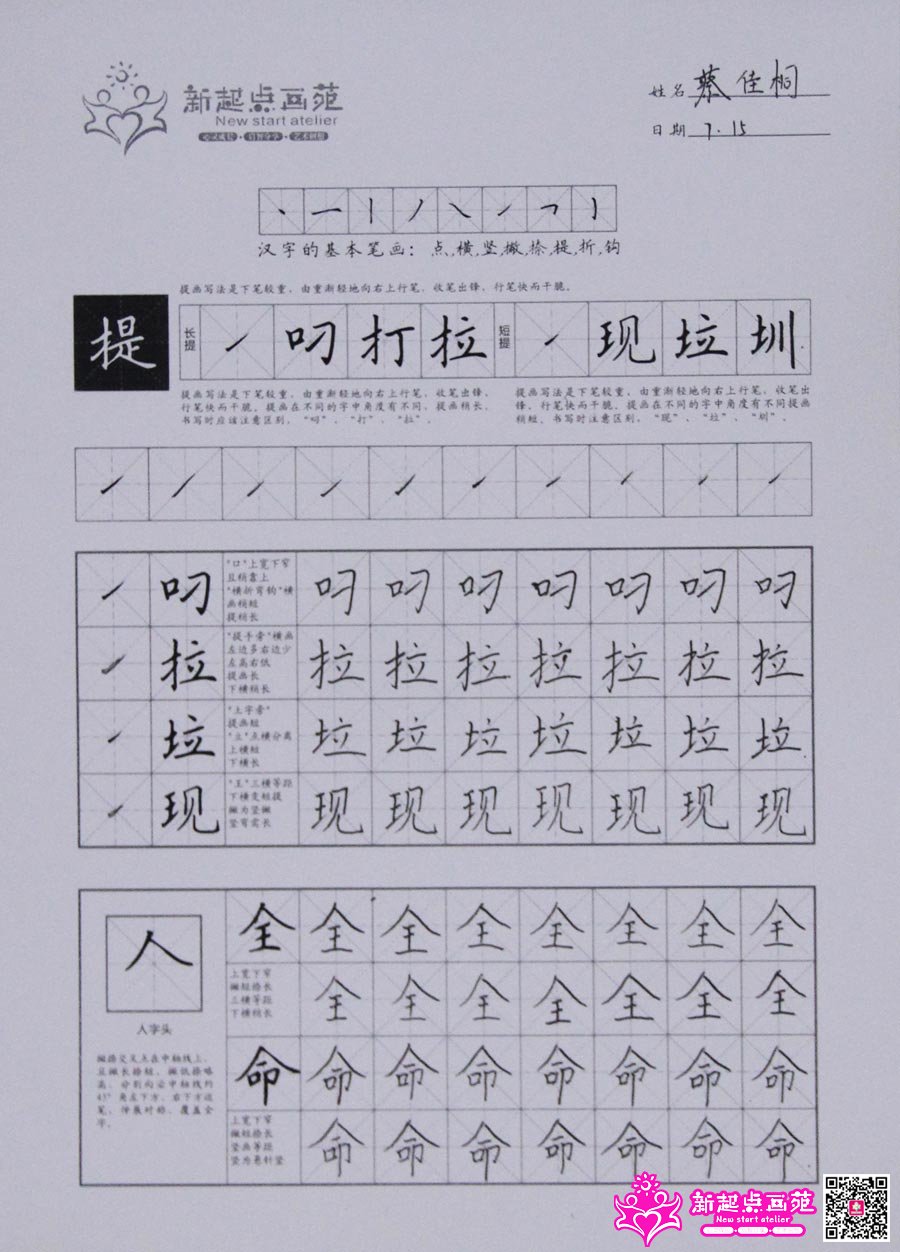 新起点画苑
New start atelier
姓名 蔡佳桐
日期 7.15
汉字的基本笔画：点,横,竖,撇,捺,提,折,钩
提画写法是下笔较重，由重渐轻地向右上行笔，收笔出锋，行笔快而干脆。
提 长提 叼 打 拉 短提 现 垃 圳
提画写法是下笔较重，由重渐轻地向右上行笔，收笔出锋，
行笔快而干脆。提画在不同的字中角度有不同，提画稍长，
书写时应该注意区别，“叼”、“打”、“拉”。
提画写法是下笔较重，由重渐轻地向右上行笔，收笔出
锋，行笔快而干脆。提画在不同的字中角度有不同提画
稍短，书写时注意区别，“现”、“垃”、“圳”。
叼
“口”上宽下窄
且稍靠上
“横折弯钩”横
画稍短
提稍长
叼 叼 叼 叼 叼 叼 叼
拉
“提手旁”横画
左边多右边少
左高右低
提画长
下横稍长
拉 拉 拉 拉 拉 拉 拉
垃
“土字旁”
提画短
“立”点横分离
上横短
下横长
垃 垃 垃 垃 垃 垃 垃
现
“王”三横等距
下横变短提
撇为竖撇
竖弯需长
现 现 现 现 现 现 现
人
人字头
撇捺交叉点在中轴线上，
且撇长捺短，撇低捺略
高，分别向沿中轴线约
45°角左下方、右下方运
笔，伸展对称，覆盖全
字。
全 全 全 全 全 全 全 全
上宽下窄
撇短捺长
三横等距
下横稍长
全 全 全 全 全 全 全
命 命 命 命 命 命 命 命
上宽下窄
撇短捺长
竖画等距
竖为悬针竖
命 命 命 命 命 命 命
新起点画苑
New start atelier